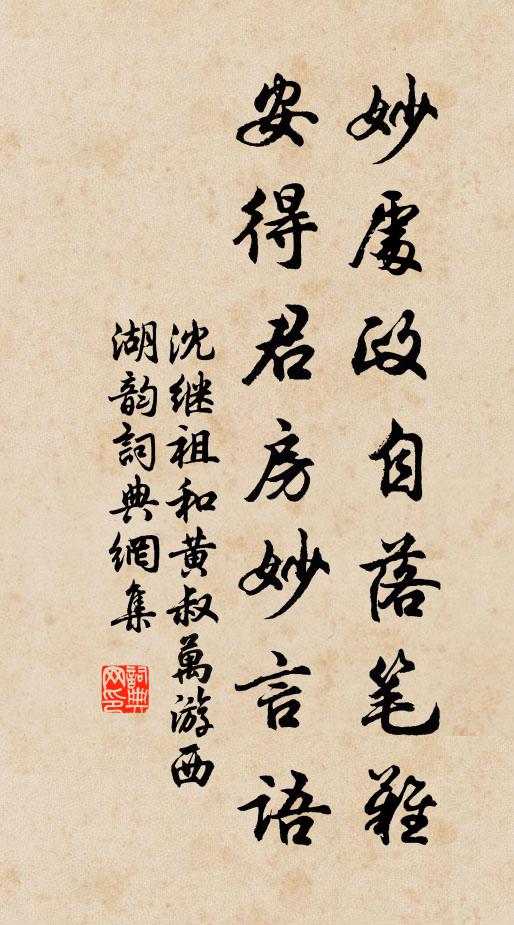 妙處政自落笔難
安得君房妙言语
沈继祖和黄叔萬游西
湖韵詞典網集
詞典网印